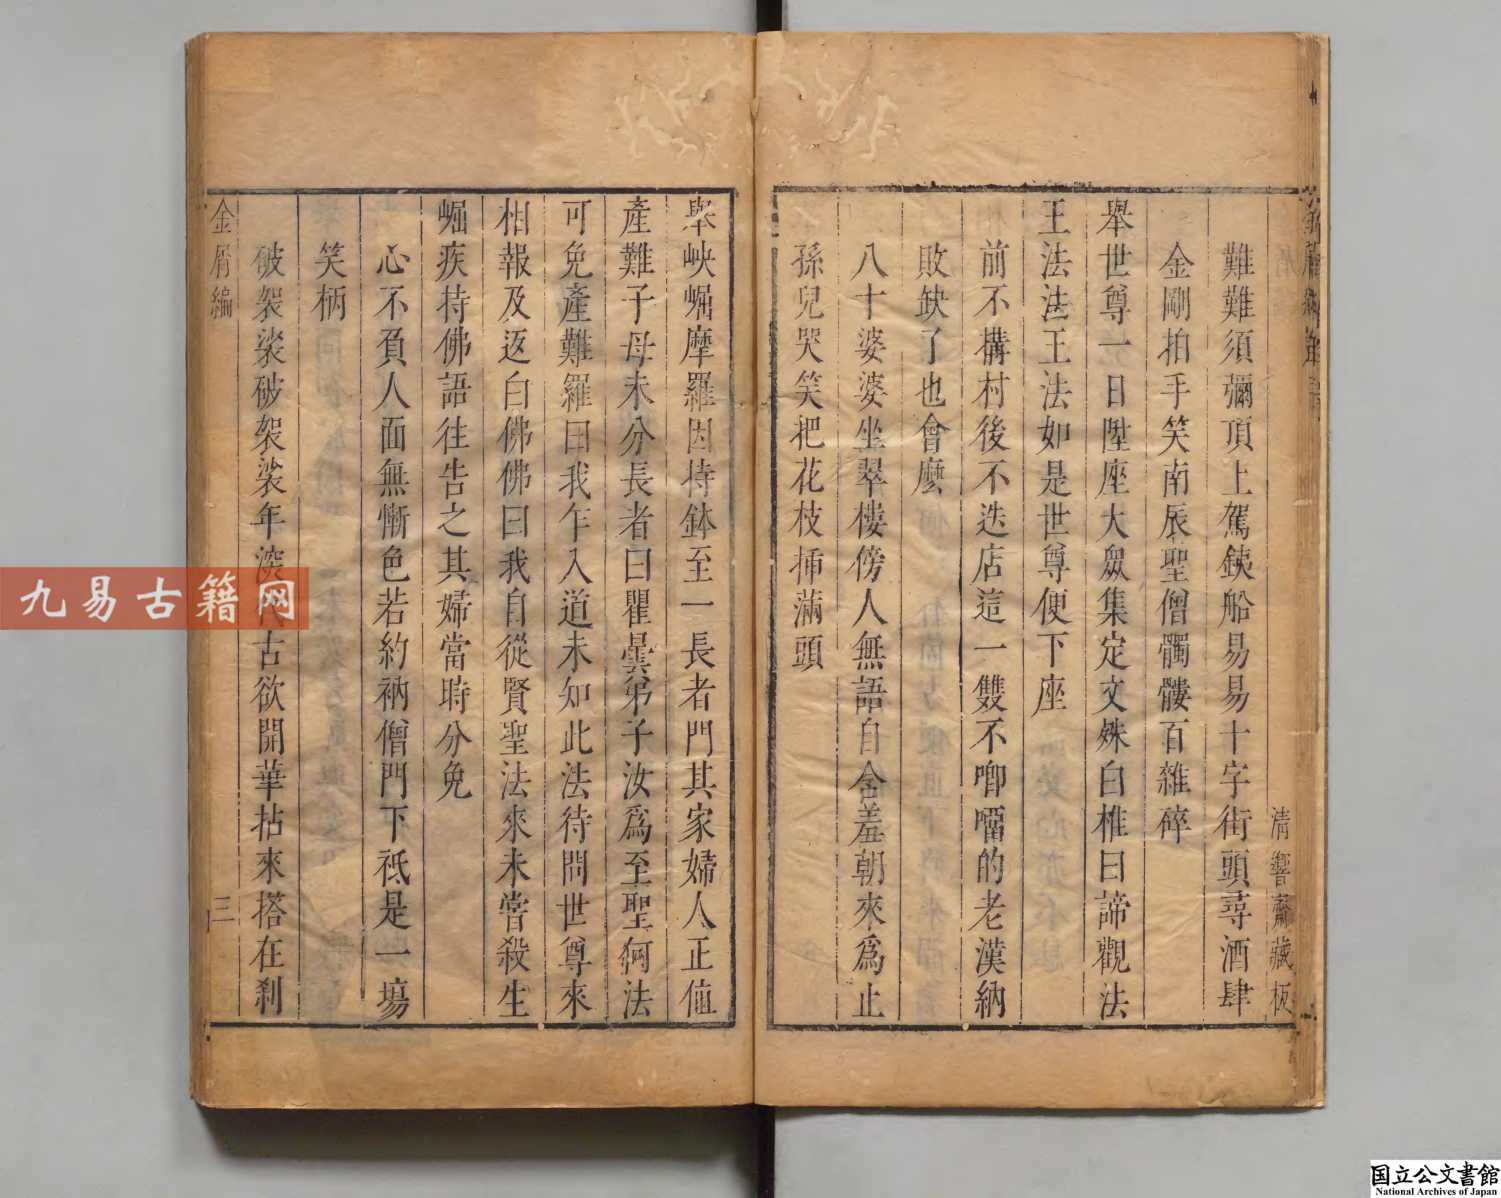 清響齋藏板
難難須彌頂上駕鐵船易易十字街頭尋酒肆
金剛拍手笑南辰聖僧髑髏百雜碎
舉世尊一日陞座大衆集定文殊白椎曰諦觀法
王法法王法如是世尊便下座
前不搆村後不迭店這一雙不唧𠺕的老漢納
敗缺了也會麼
八十婆婆坐翠樓傍人無語自含羞朝來爲止
孫兒哭笑把花枝揷滿頭
舉峽崛摩羅因持鉢至一長者門其家婦人正值
產難子母未分長者曰瞿曇弟子汝爲至聖何法
可免產難羅曰我乍入道未知此法待問世尊來
相報及返白佛佛曰我自從賢聖法來未嘗殺生
崛疾持佛語往告之其婦當時分免
心不負人面無慚色若約衲僧門下祗是一塲
笑柄
破袈裟破袈裟年深代古欲開華拈來搭在刹
金屑編
三
九易古籍网
国立公文書館
National Archives of Japan